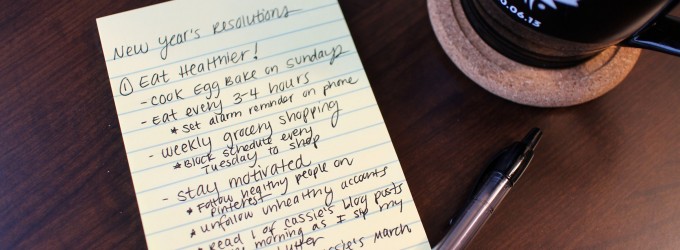 New Year's Resolutions
① Eat Healthier!
- Cook Egg Bake on Sundays
- Eat every 3-4 hours
* Set alarm reminder on phone
- weekly grocery shopping
* Block schedule every
Tuesday to shop
- Stay motivated
* Follow healthy people on
Pinterest
* Unfollow unhealthy accounts
* Read 1 of Cassie's blog posts
morning as I sip my
Cassie's March
06.13